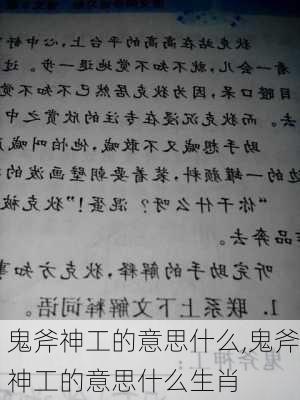 狄克站在高高的平台上,心中舒
着一会儿,就不知不觉地退一步。过
目瞪口呆,因为狄克居然已不知不觉
去。而狄克沉浸在专注的欣赏之中
助手想喊又不敢喊,他怕叫喊
边的一罐颜料,装着要朝壁画泼的
“你干什么呀?混蛋!”狄克被
作品奔去。
听完助手的解释,狄克方知事
1. 联系上下文解释词语。
鬼斧神工:
鬼斧神工的意思什么,鬼斧
神工的意思什么生肖